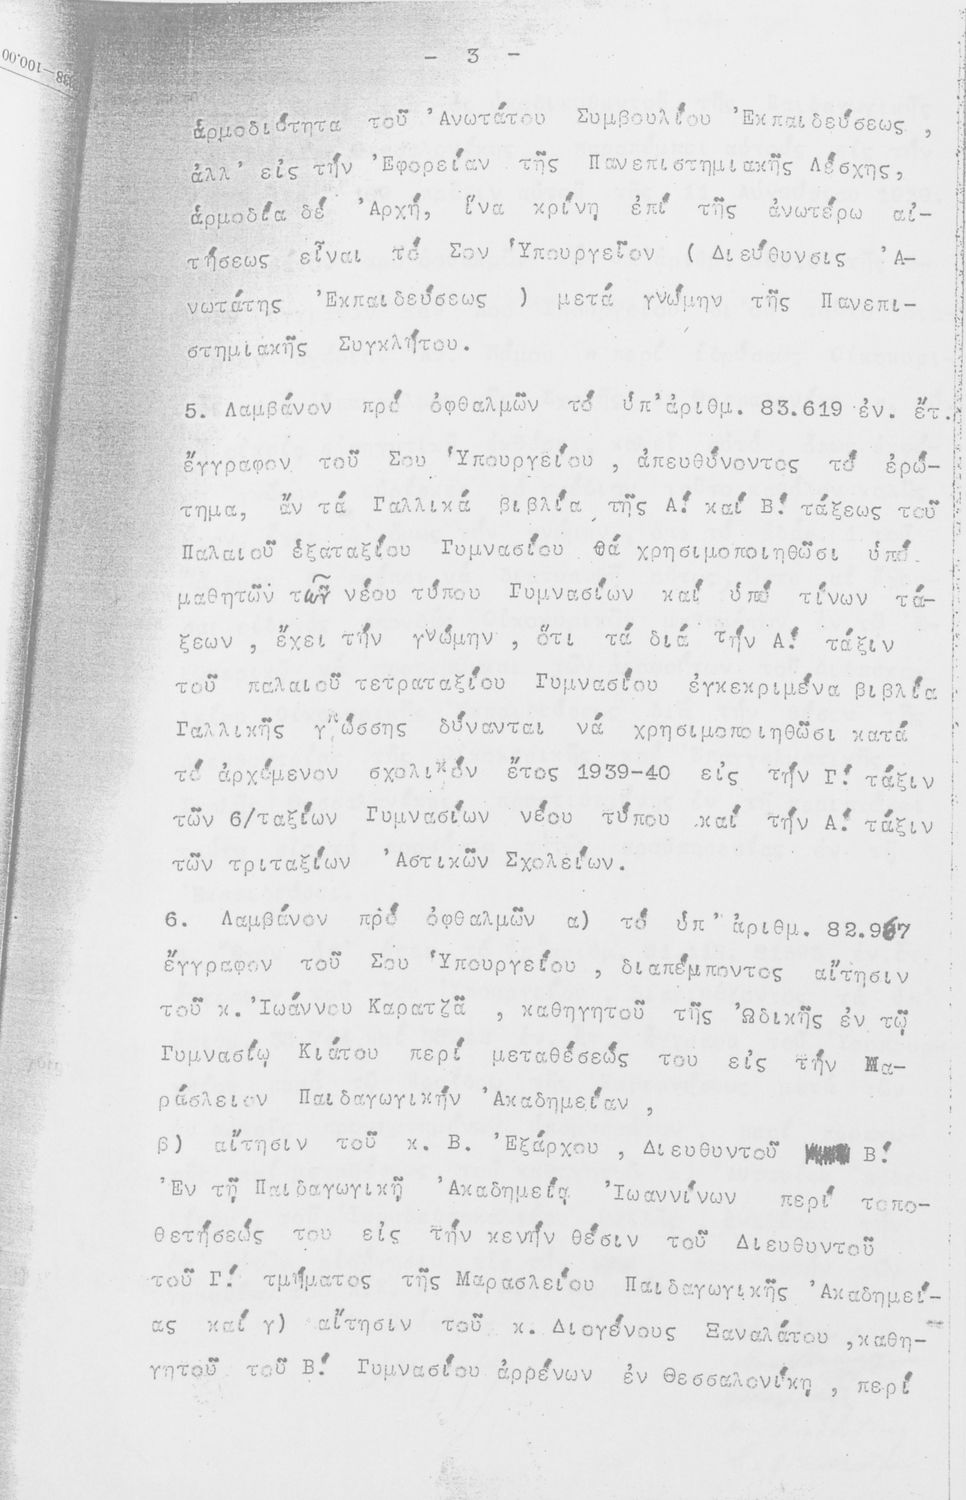 - 3 -
ἁρμοδιότητα τοῦ Ἀνωτάτου Συμβουλίου Ἐκπαιδεύσεως ,
ἀλλ' εἰς τήν Ἐφορείαν τῆς Πανεπιστημιακῆς Λέσχης,
ἁρμοδία δέ Ἀρχή, ἵνα κρίνῃ ἐπί τῆς ἀνωτέρω αἰ-
τήσεως εἶναι τό Σον Ὑπουργεῖον ( Διεύθυνσις Ἀ-
νωτάτης Ἐκπαιδεύσεως ) μετά γνώμην τῆς Πανεπι-
στημιακῆς Συγκλήτου.
5. Λαμβάνον πρό ὀφθαλμῶν τό ὑπ'ἀριθμ. 83.619 ἐν. ἔτ.
ἔγγραφον τοῦ Σου Ὑπουργείου , ἀπευθύνοντος τό ἐρώ-
τημα, ἄν τά Γαλλικά βιβλία τῆς Α! καί Β! τάξεως τοῦ
Παλαιοῦ ἑξαταξίου Γυμνασίου θά χρησιμοποιηθῶσι ὑπό
μαθητῶν τῶν νέου τύπου Γυμνασίων καί ὑπό τίνων τά-
ξεων , ἔχει τήν γνώμην , ὅτι τά διά τήν Α! τάξιν
τοῦ παλαιοῦ τετραταξίου Γυμνασίου ἐγκεκριμένα βιβλία
Γαλλικῆς γλώσσης δύνανται νά χρησιμοποιηθῶσι κατά
τό ἀρχόμενον σχολικόν ἔτος 1939-40 εἰς τήν Γ! τάξιν
τῶν 6/ταξίων Γυμνασίων νέου τύπου καί τήν Α! τάξιν
τῶν τριταξίων Ἀστικῶν Σχολείων.
6. Λαμβάνον πρό ὀφθαλμῶν α) τό ὑπ' ἀριθμ. 82.967
ἔγγραφον τοῦ Σου Ὑπουργείου , διαπέμποντος αἴτησιν
τοῦ κ. Ἰωάννου Καρατζᾶ , καθηγητοῦ τῆς Ὠδικῆς ἐν τῷ
Γυμνασίῳ Κιάτου περί μεταθέσεώς του εἰς τήν Μα-
ράσλειον Παιδαγωγικήν Ἀκαδημείαν ,
β) αἴτησιν τοῦ κ. Β. Ἐξάρχου , Διευθυντοῦ Β!
Ἐν τῇ Παιδαγωγικῇ Ἀκαδημείᾳ Ἰωαννίνων περί τοπο-
θετήσεώς του εἰς τήν κενήν θέσιν τοῦ Διευθυντοῦ
τοῦ Γ! τμήματος τῆς Μαρασλείου Παιδαγωγικῆς Ἀκαδημεί-
ας καί γ) αἴτησιν τοῦ κ. Διογένους Ξαναλάτου ,καθη-
γητοῦ τοῦ Β! Γυμνασίου ἀρρένων ἐν Θεσσαλονίκῃ , περί